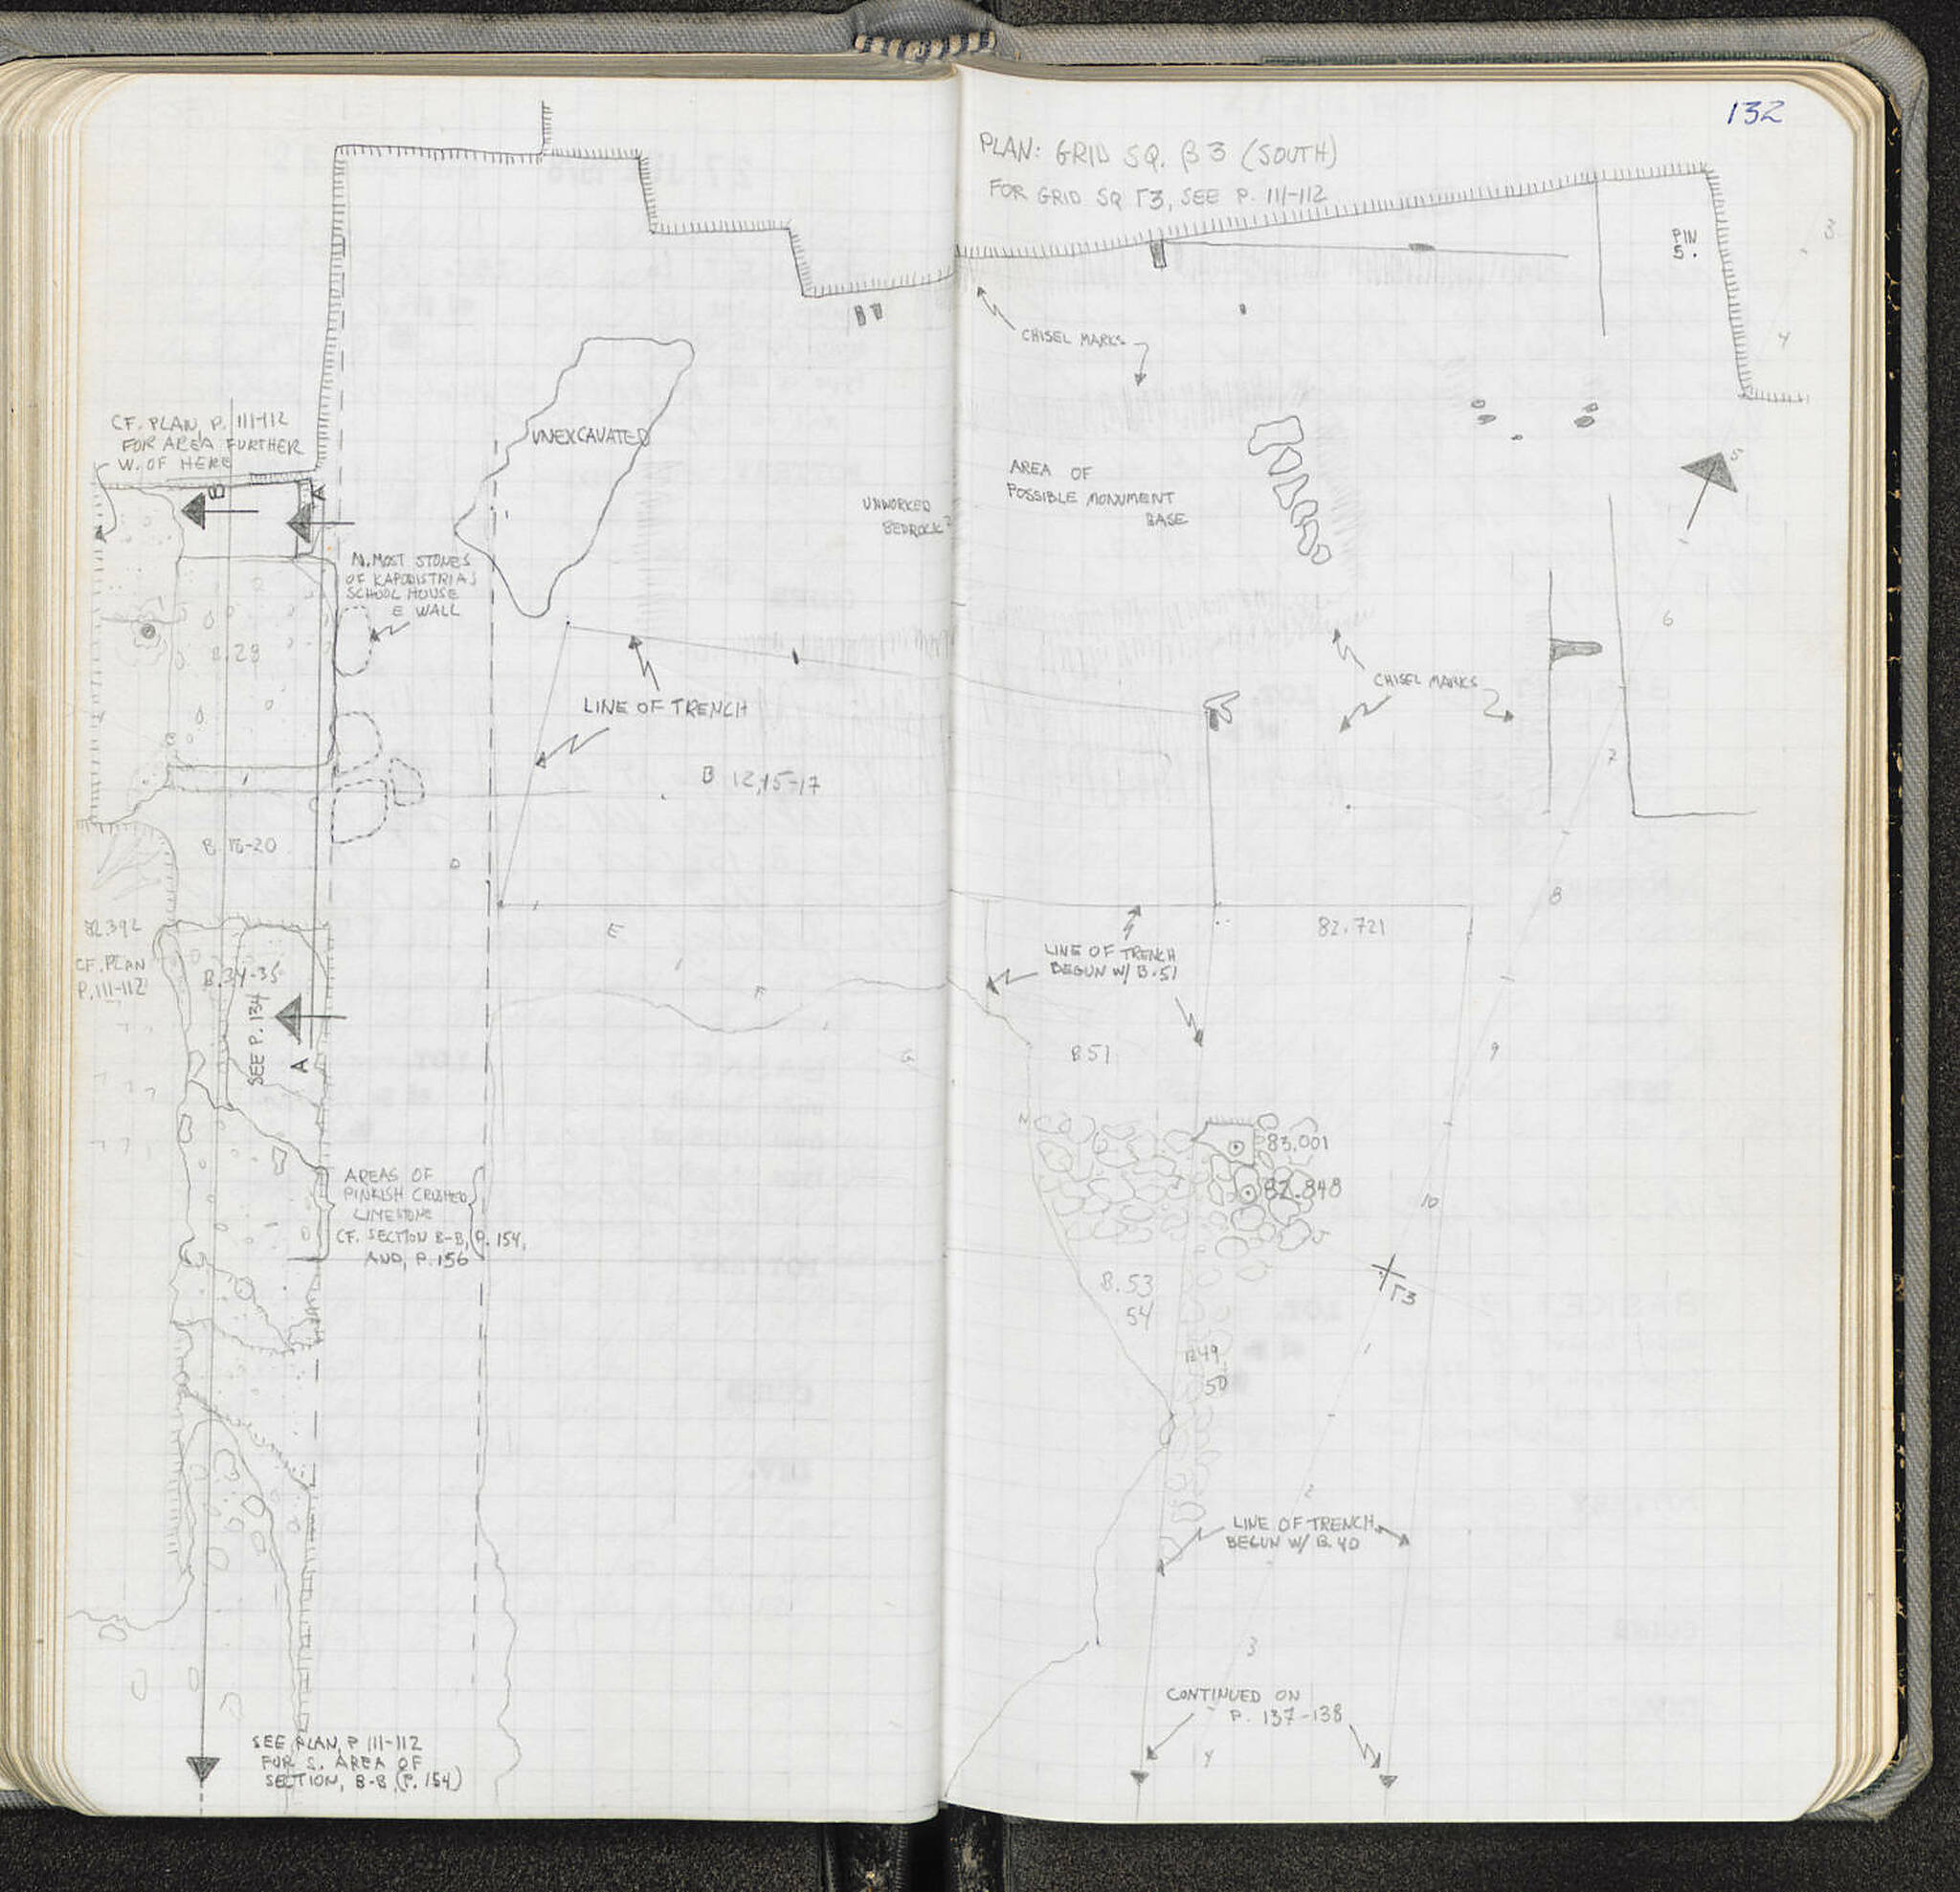 132
PLAN: GRID SQ. β3 (SOUTH)
FOR GRID SQ Γ3, SEE P. 111-112
PIN
5.
3
4
5
6
7
8
9
10
CHISEL MARKS
AREA OF
POSSIBLE MONUMENT
BASE
UNWORKED
BEDROCK?
CHISEL MARKS
UNEXCAVATED
CF. PLAN, P. 111-112
FOR AREA FURTHER
W. OF HERE
B
A
N. MOST STONES
OF KAPODISTRIAS
SCHOOL HOUSE
E WALL
B.28
LINE OF TRENCH
B 12,15-17
B 18-20
D
E
F
G
82.392
CF. PLAN
P. 111-112
B.34-35
SEE P. 134
A
LINE OF TRENCH
BEGUN W/ B.51
82.721
B51
83.001
82.848
AREAS OF
PINKISH CRUSHED
LIMESTONE
CF. SECTION B-B, P. 154,
AND, P. 156
B.53
54
Γ3
B49
50
1
2
LINE OF TRENCH
BEGUN W/ B.40
3
CONTINUED ON
P. 137-138
4
SEE PLAN, P 111-112
FOR S. AREA OF
SECTION, B-B (P. 154)